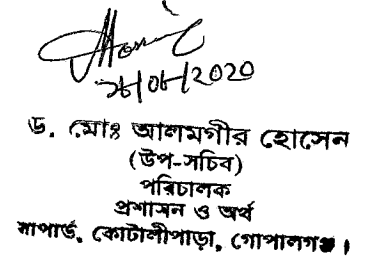 /2020
ড. মোঃ আলমগীর হোসেন
(উপ-সচিব)
পরিচালক
প্রশাসন ও অর্থ
বাপার্ড, কোটালীপাড়া, গোপালগঞ্জ।